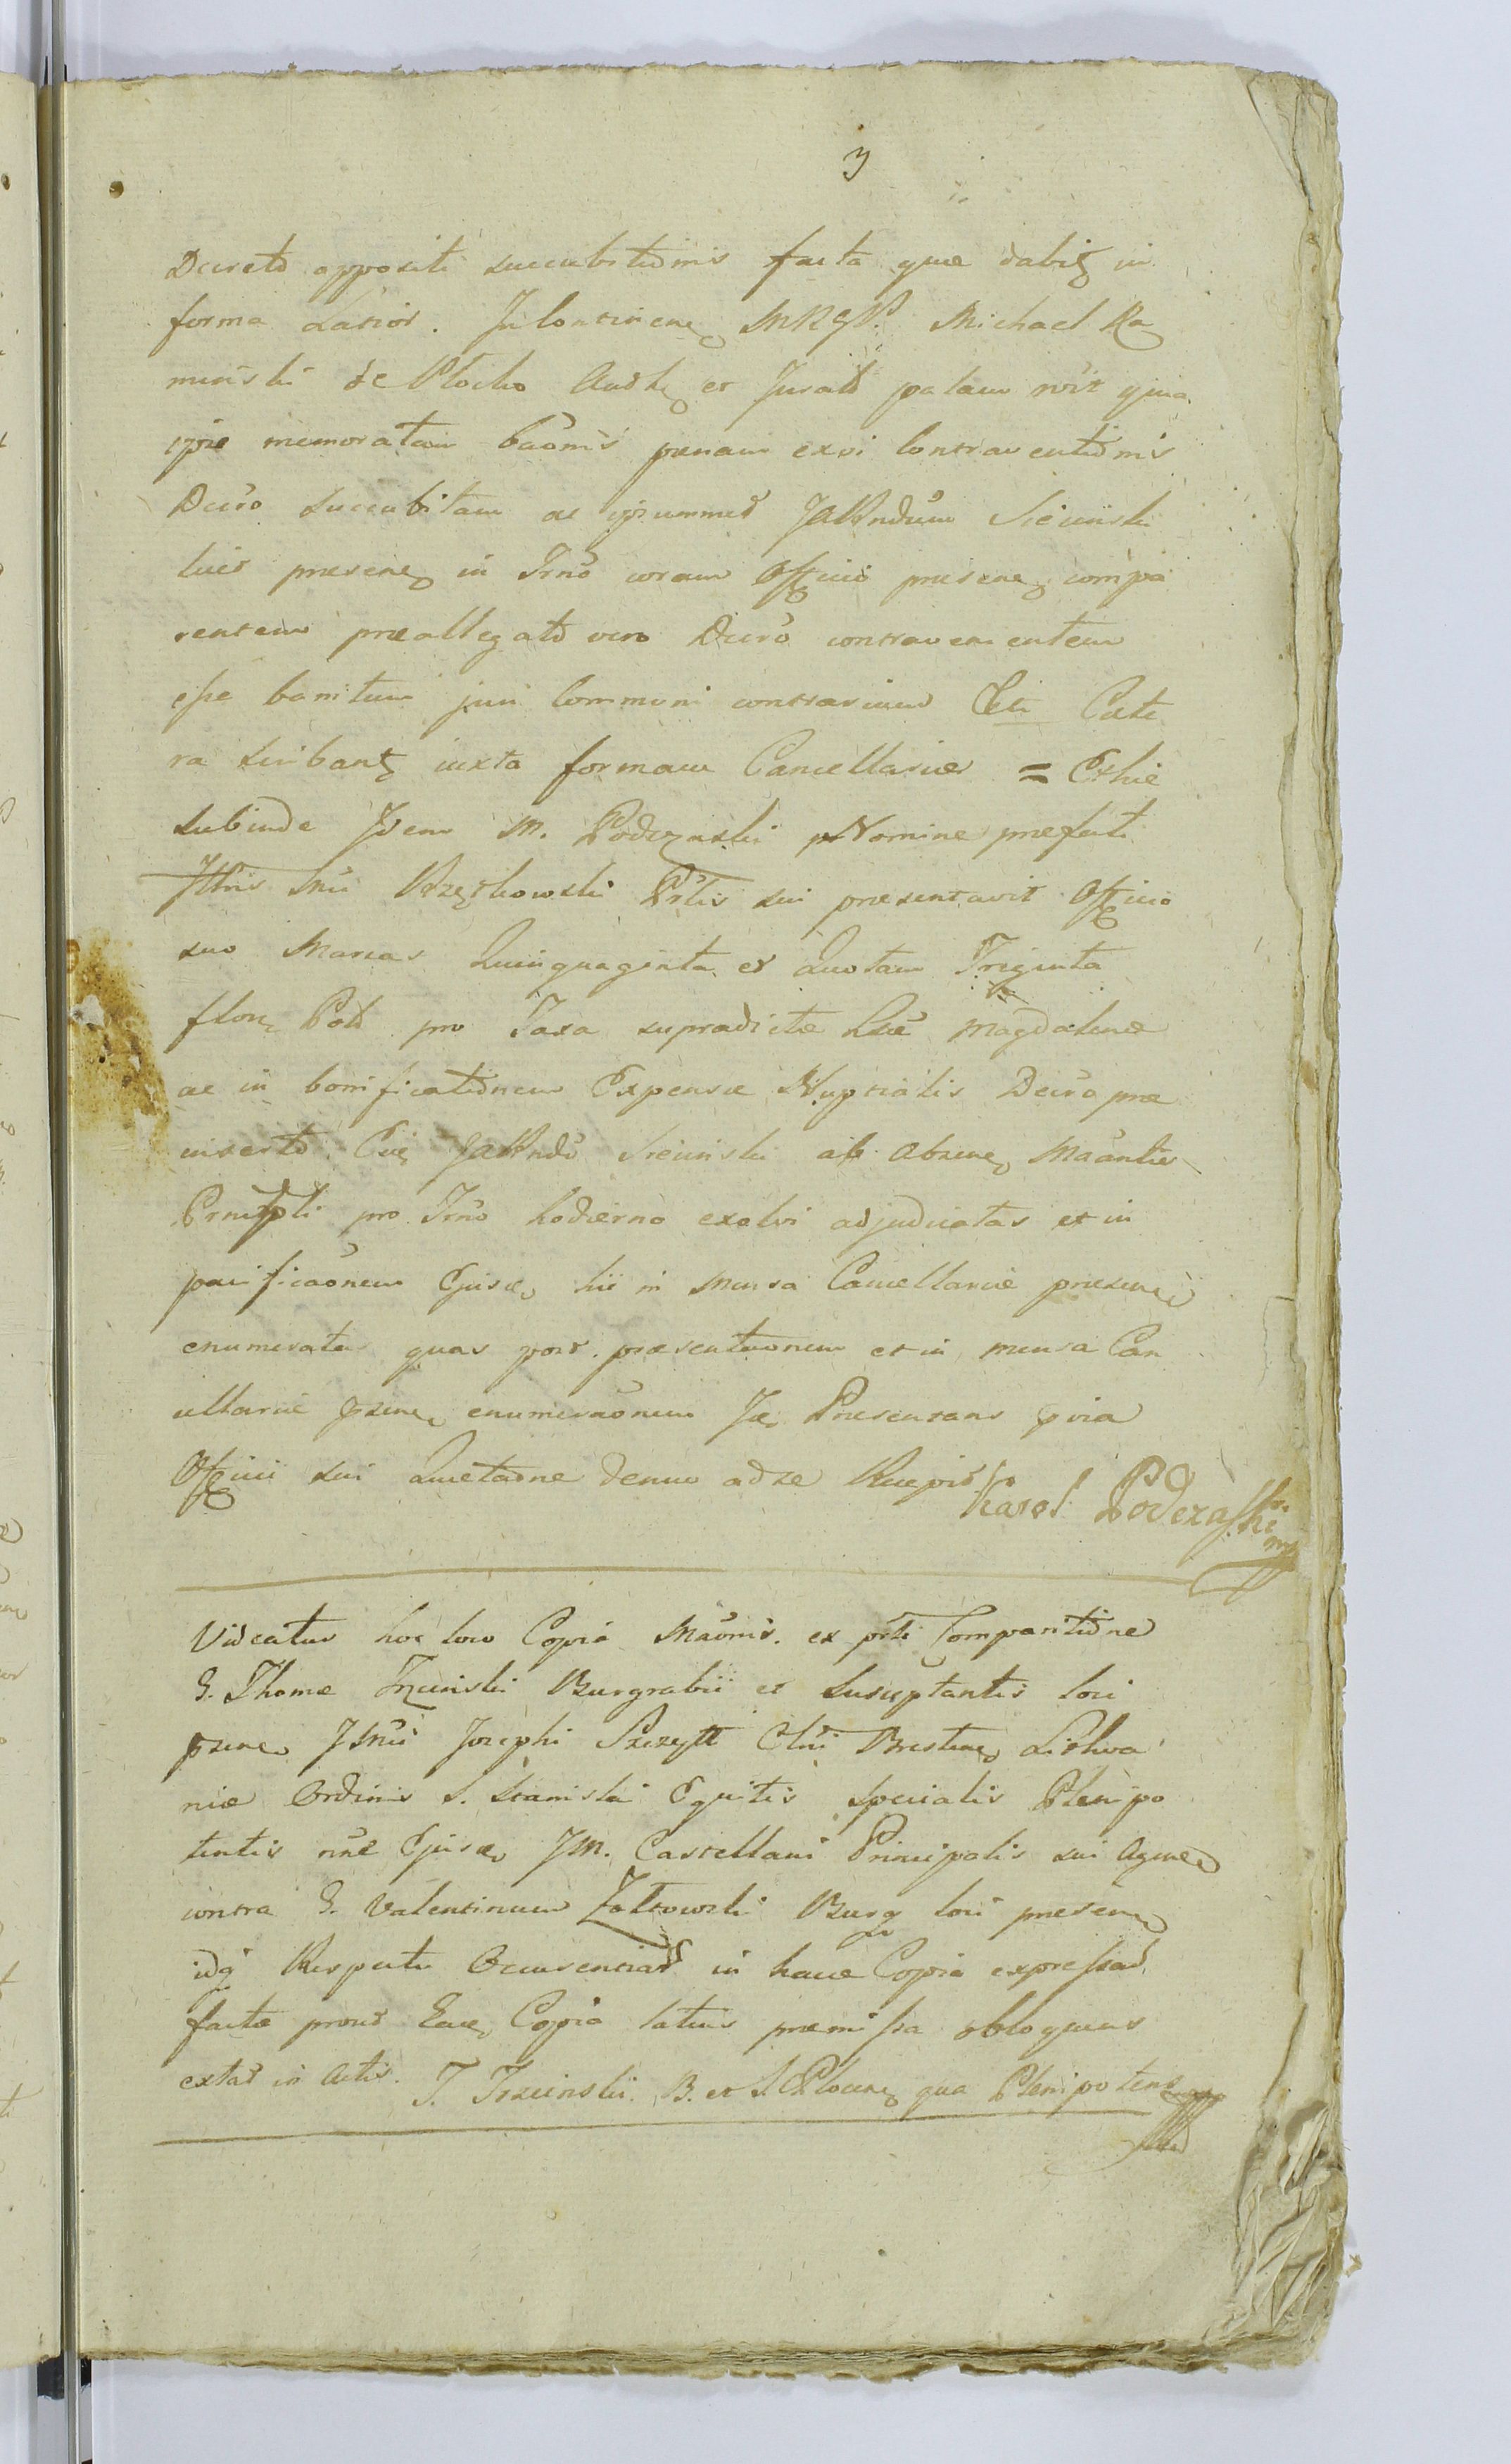 3
Decreto oppositi succubitionis facta que dabitȝ in
forma Latior. In continenȝ MRGP. Michael Ka
minski de Plocko Audlȝ et Jurats palam rōit qma
ipse memoratam bāomis penam exvi contraventiōnis
Decro succubitam ac ipsummet JaKndum Sieciński
lucr presenȝ in Trno coram Officio presenȝ compa
rentem præallegato vero Decro contravenientem
eſse banitum juri Communi contrarium Cete Cete
ra scribantȝ iuxta formam Cancellariæ = Et hic
subinde Idem M. Podczaski Nomine prefati
Jllris Mci Krzętkowski Prlis sui presentavit Officio
suo Marcas Quinquaginta et Quotam Triginta
flonȝ Poll pro Taxa supradictæ Magdalenæ
ac in bonificationem Expensæ Nuptialis Decro præ
inserto. JaKndo Sieciński ab Absenȝ Maantis
Prncipli pro Trno hodierno exolvi adjudicatas et in
pacificaōnem Ejusdȝ hic in Mensa Cancellariæ presenȝ
enumeratas quas post præsentationem et in mensa Can
cellariæ psenȝ enumeraōnem Jdȝ Presentans pvia
Officii sui Quietaōne denuo ad se Recepit Karol Podczaski mp
Videatur hoc loco Copia Maōnis. ex prti Comparitiōne
G. Thomæ Trzcinski Burgrabii et Susceptantis loci
psenȝ JMci Josephi Szczytt Cllni Brestenȝ Lithva
niæ Ordinis S. Stanislai Equitis specialis Plenipo
tentis nne Ejusdȝ JM. Castellani Principalis sui Agenȝ
contra G. Valentinum Żołtowski Burg loci presenȝ
idqȝ Respectu in hacce Copia expreſsaȝ
factæ prout Eadȝ Copia latius præmiſsa obloquens
extat in Actis. T. Trzcinski. B. et S. Plocenȝ qua Plenipotens mpp